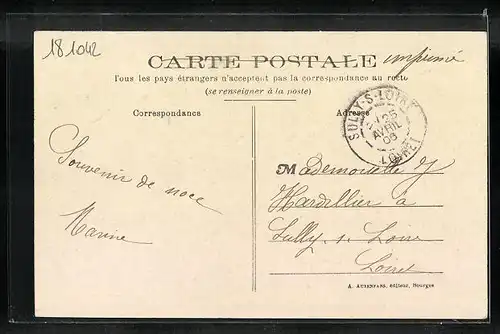 181042
CARTE POSTALE imprimé
Tous les pays étrangers n'acceptent pas la correspondance au recto
(se renseigner à la poste)
Correspondance
Adresse
SULLY-S-LOIRE
25
AVRIL
06
LOIRET
Souvenir de noce
Mademoiselle Y
Hardillier à
Sully s. Loire
Loiret
A. AUXENFANS, éditeur, Bourges